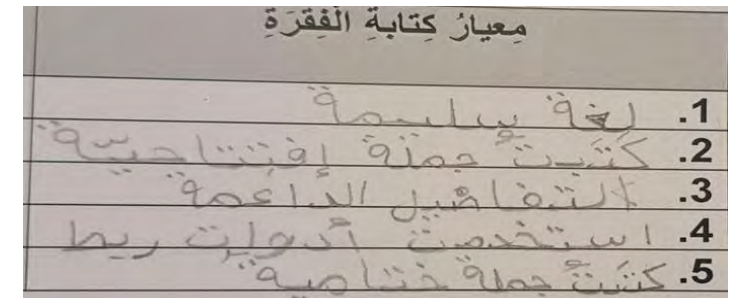 مِعيارُ كِتابةِ الْفِقرَةِ
1. لغة سليمة
2. كَتَبتُ جملة إفتتاحيّة
3. التفاصيل الداعمة
4. استخدمت أدوات ربط
5. كتَبتُ جملة ختامية